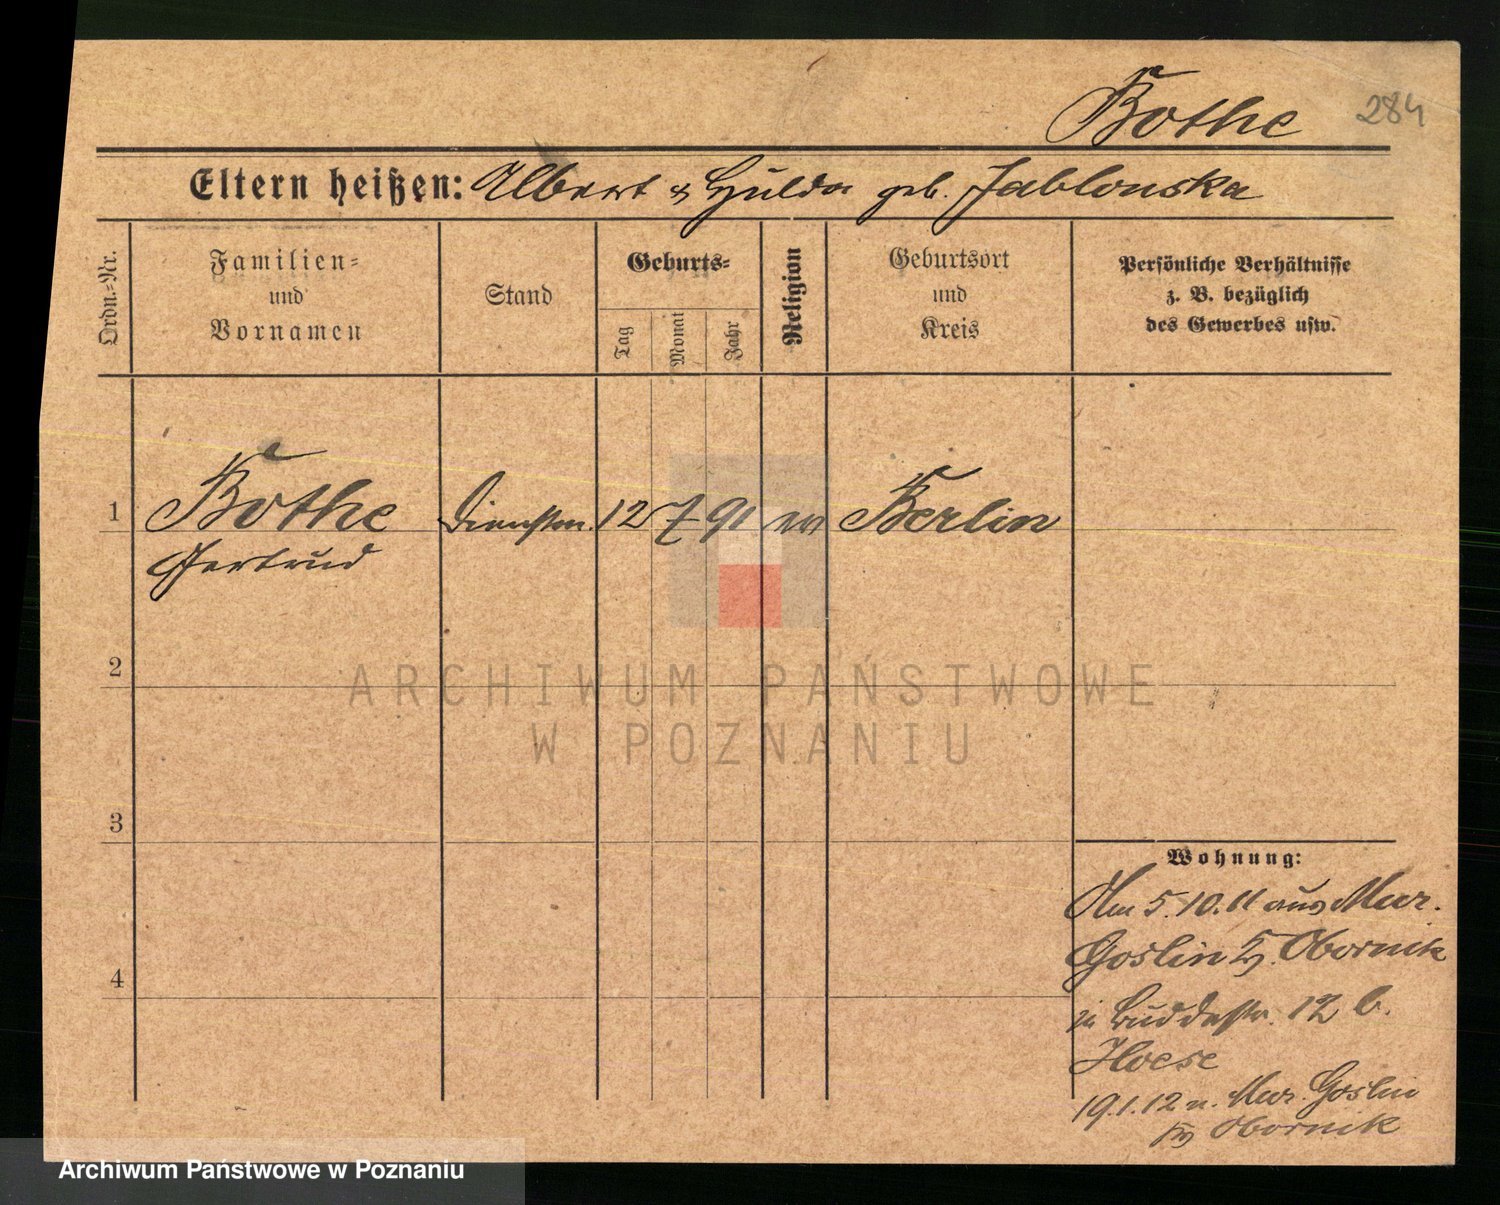 Bothe 284
Eltern heißen: Albert & Hulda geb. Jablonska
Ordn.-Nr.
Familien-
und
Vornamen
Stand
Geburts-
Tag
Monat
Jahr
Religion
Geburtsort
und
Kreis
Persönliche Verhältnisse
z. B. bezüglich
des Gewerbes usw.
1 Bothe Dienstm. 12 7 91 ev Berlin
Gertrud
2
3
4
Wohnung:
Am 5.10.11 aus Mur.
Goslin Kr. Obornik
in Buddestr. 12 b.
Hoese
19.1.12 n. Mur. Goslin
Kr Obornik
ARCHIWUM PAŃSTWOWE
W POZNANIU
Archiwum Państwowe w Poznaniu